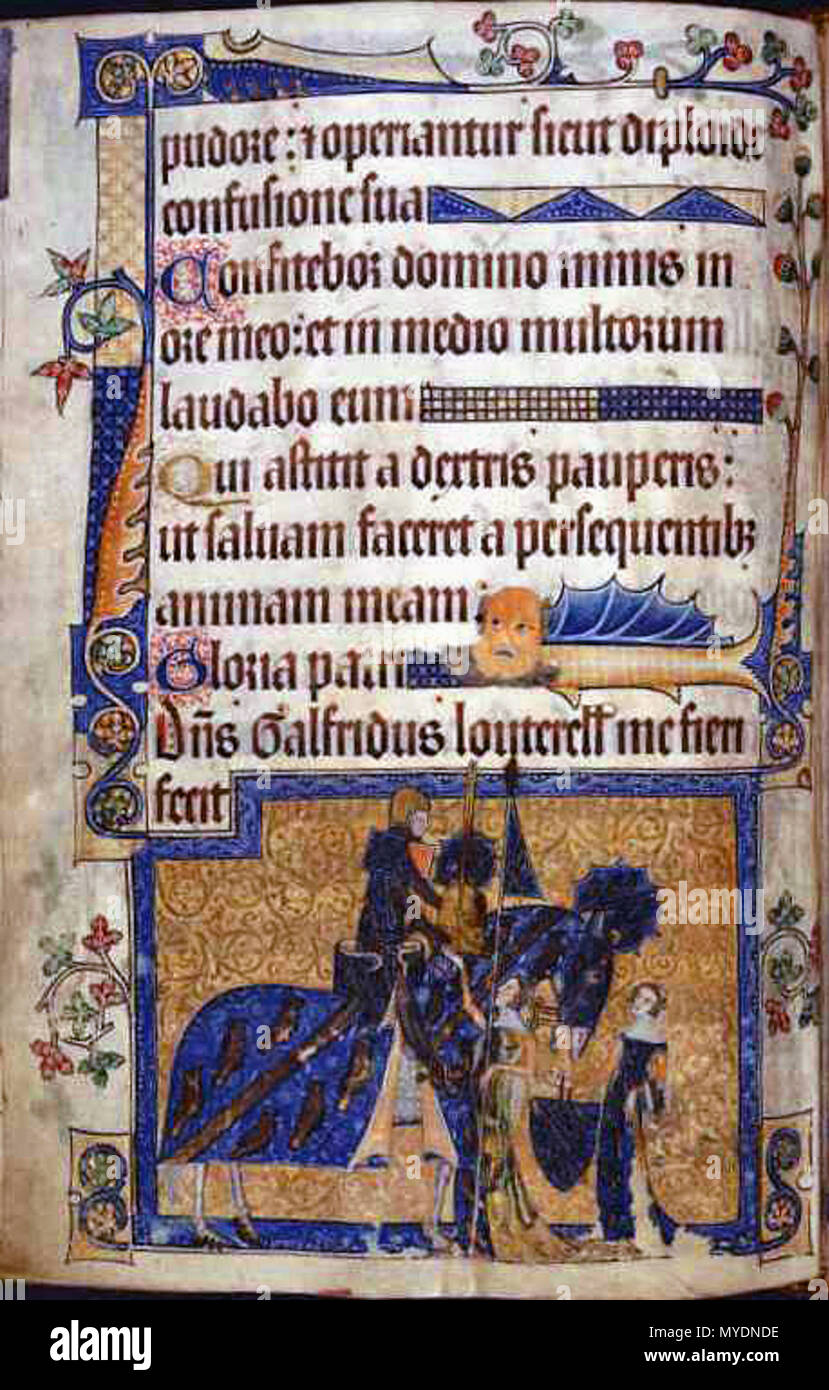 pudore : ⁊ operiantur sicut diploide
confusione sua
Confitebor domino nimis in
ore meo : et in medio multorum
laudabo eum
Qui astitit a dextris pauperis :
ut saluam faceret a persequentibꝫ
animam meam
Gloria patri
Dn̄s Galfridus louterell me fieri
fecit
alamy
Image ID: MYDNDE
www.alamy.com